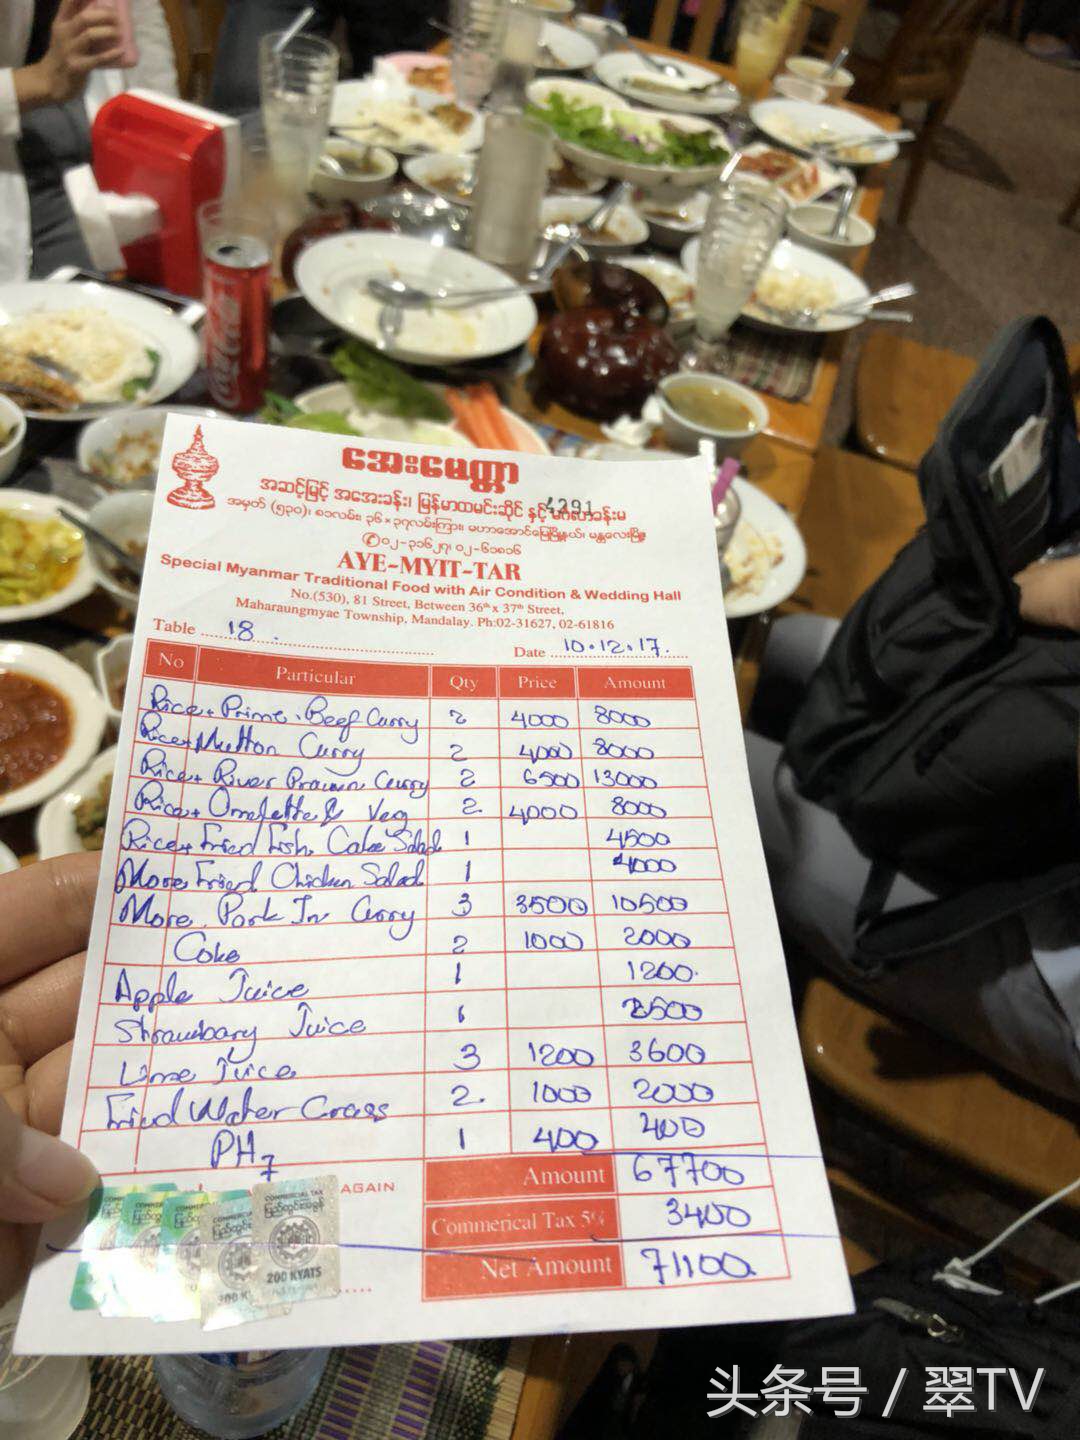 အေးမေတ္တာ
အဆင့်မြင့် အအေးခန်း၊ မြန်မာထမင်းဆိုင် နှင့် မင်္ဂလာခန်းမ
4291
အမှတ် (၅၃၀)၊ ၈၁လမ်း၊ ၃၆ × ၃၇လမ်းကြား၊ မဟာအောင်မြေမြို့နယ်၊ မန္တလေးမြို့
၀၂-၃၁၆၂၇၊ ၀၂-၆၁၈၁၆
AYE-MYIT-TAR
Special Myanmar Traditional Food with Air Condition & Wedding Hall
No.(530), 81 Street, Between 36th x 37th Street,
Maharaungmyae Township, Mandalay. Ph:02-31627, 02-61816
Table 18 Date 10.12.17.
No Particular Qty Price Amount
Rice + Prime Beef Curry 2 4000 8000
Rice + Mutton Curry 2 4000 8000
Rice + River Prawn Curry 2 6500 13000
Rice + Omelette & Veg 2 4000 8000
Rice + Fried Fish Cake Salad 1 4500
More Fried Chicken Salad 1 4000
More Pork In Curry 3 3500 10500
Coke 2 1000 2000
Apple Juice 1 1200
Strawbary Juice 1 2500
Lime Juice 3 1200 3600
Fried Water Crass 2 1000 2000
PH7 1 400 400
AGAIN Amount 67700
Commerical Tax 5% 3400
Net Amount 71100
COMMERCIAL TAX
200 KYATS
Coca-Cola
头条号 / 翠TV